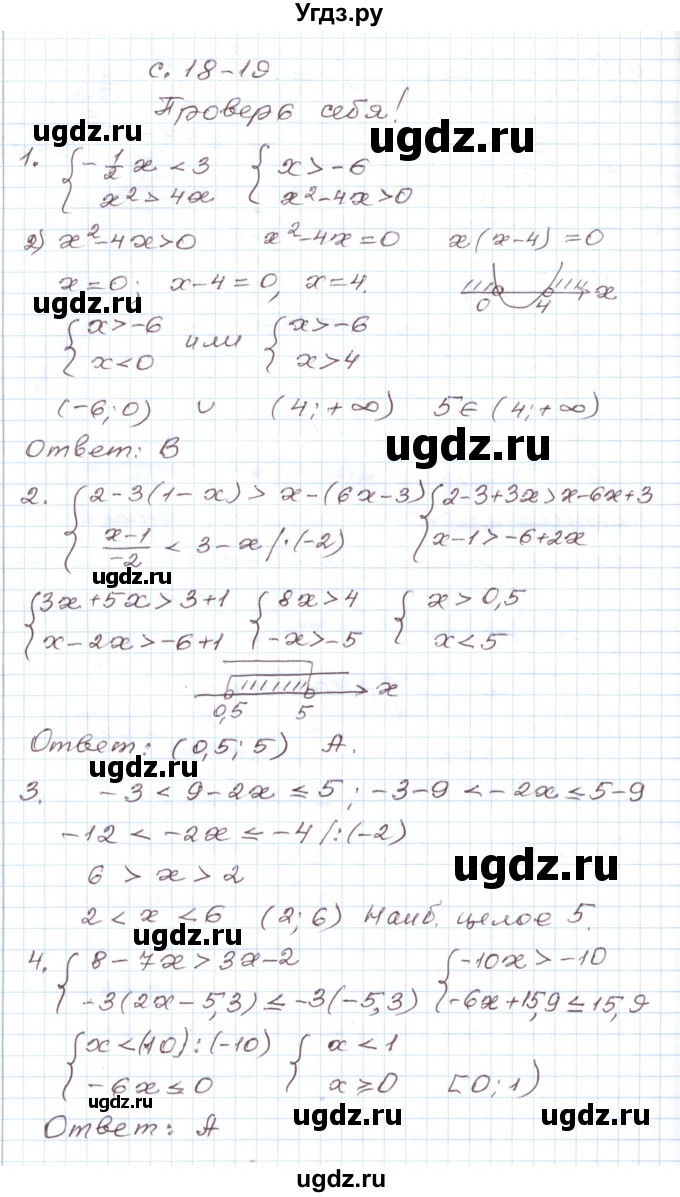 Угдз.ру
с. 18-19
Проверь себя!
ugdz.ru ugdz.ru
1. { -1/2 x < 3 { x > -6
x² > 4x x² - 4x > 0
2) x² - 4x > 0 x² - 4x = 0 x(x-4) = 0
x = 0; x - 4 = 0, x = 4. 0 4 x
ugdz.ru
{ x > -6 или { x > -6
x < 0 x > 4
(-6; 0) ∪ (4; +∞) 5 ∈ (4; +∞)
Ответ: В
ugdz.ru
2. { 2-3(1-x) > x-(6x-3) { 2-3+3x > x-6x+3
(x-1)/-2 < 3-x /·(-2) x-1 > -6+2x
ugdz.ru
{ 3x+5x > 3+1 { 8x > 4 { x > 0,5
x-2x > -6+1 -x > -5 x < 5
0,5 5 x
Ответ: (0,5; 5) А.
ugdz.ru
3. -3 < 9-2x ≤ 5; -3-9 < -2x ≤ 5-9
-12 < -2x ≤ -4 /:(-2)
6 > x > 2
ugdz.ru
2 < x < 6 (2; 6) Наиб. целое 5.
ugdz.ru
4. { 8-7x > 3x-2 { -10x > -10
-3(2x-5,3) ≤ -3(-5,3) -6x+15,9 ≤ 15,9
{ x < (-10):(-10) { x < 1
-6x ≤ 0 x ≥ 0 [0; 1)
ugdz.ru ugdz.ru
Ответ: А
ugdz.ru